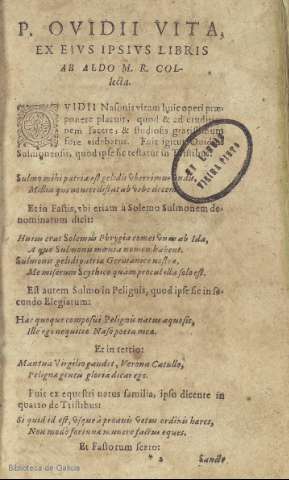 P. OVIDII VITA,
EX EIVS IPSIVS LIBRIS
AB ALDO M. R. COL-
lecta.
OVIDII Nasonis vitam huic operi præ-
ponere placuit, quod & ad
nem facere, & studiosis gratissimum
fore videbatur. Fuit igitur
Sulmonensis, quod ipse sic testatur in Tristibus
Sulmo mihi patria est gelidis vberrimus vndis,
Millia qui nouies distat ab vrbe decem.
Et in Fastis, vbi etiam à Solemo Sulmonem de-
nominatum dicit:
Huius erat Solemus Phrygia comes vnus ab Ida,
A quo Sulmonis mœnia nomen habent.
Sulmonis gelidi patria Germanice nostræ,
Me miserum Scythico quam procul illa solo est.
Est autem Sulmo in Pelignis, quod ipse sic in se-
cundo Elegiarum:
Hac quoque composui Pelignis natus aquosis,
Ille ego nequitiæ Naso poeta meæ.
Et in tertio:
Mantua Virgilio gaudet, Verona Catullo,
Pelignæ gentis gloria dicar ego.
Fuit ex equestri vetus familia, ipso dicente in
quarto de Tristibus:
Si quid id est, vsque à proauis vetus ordinis hæres,
Non modo fortunæ munere factus eques.
Et Fastorum sexto:
* 2 Sancte
VIEIRA PINTO
Biblioteca de Galicia